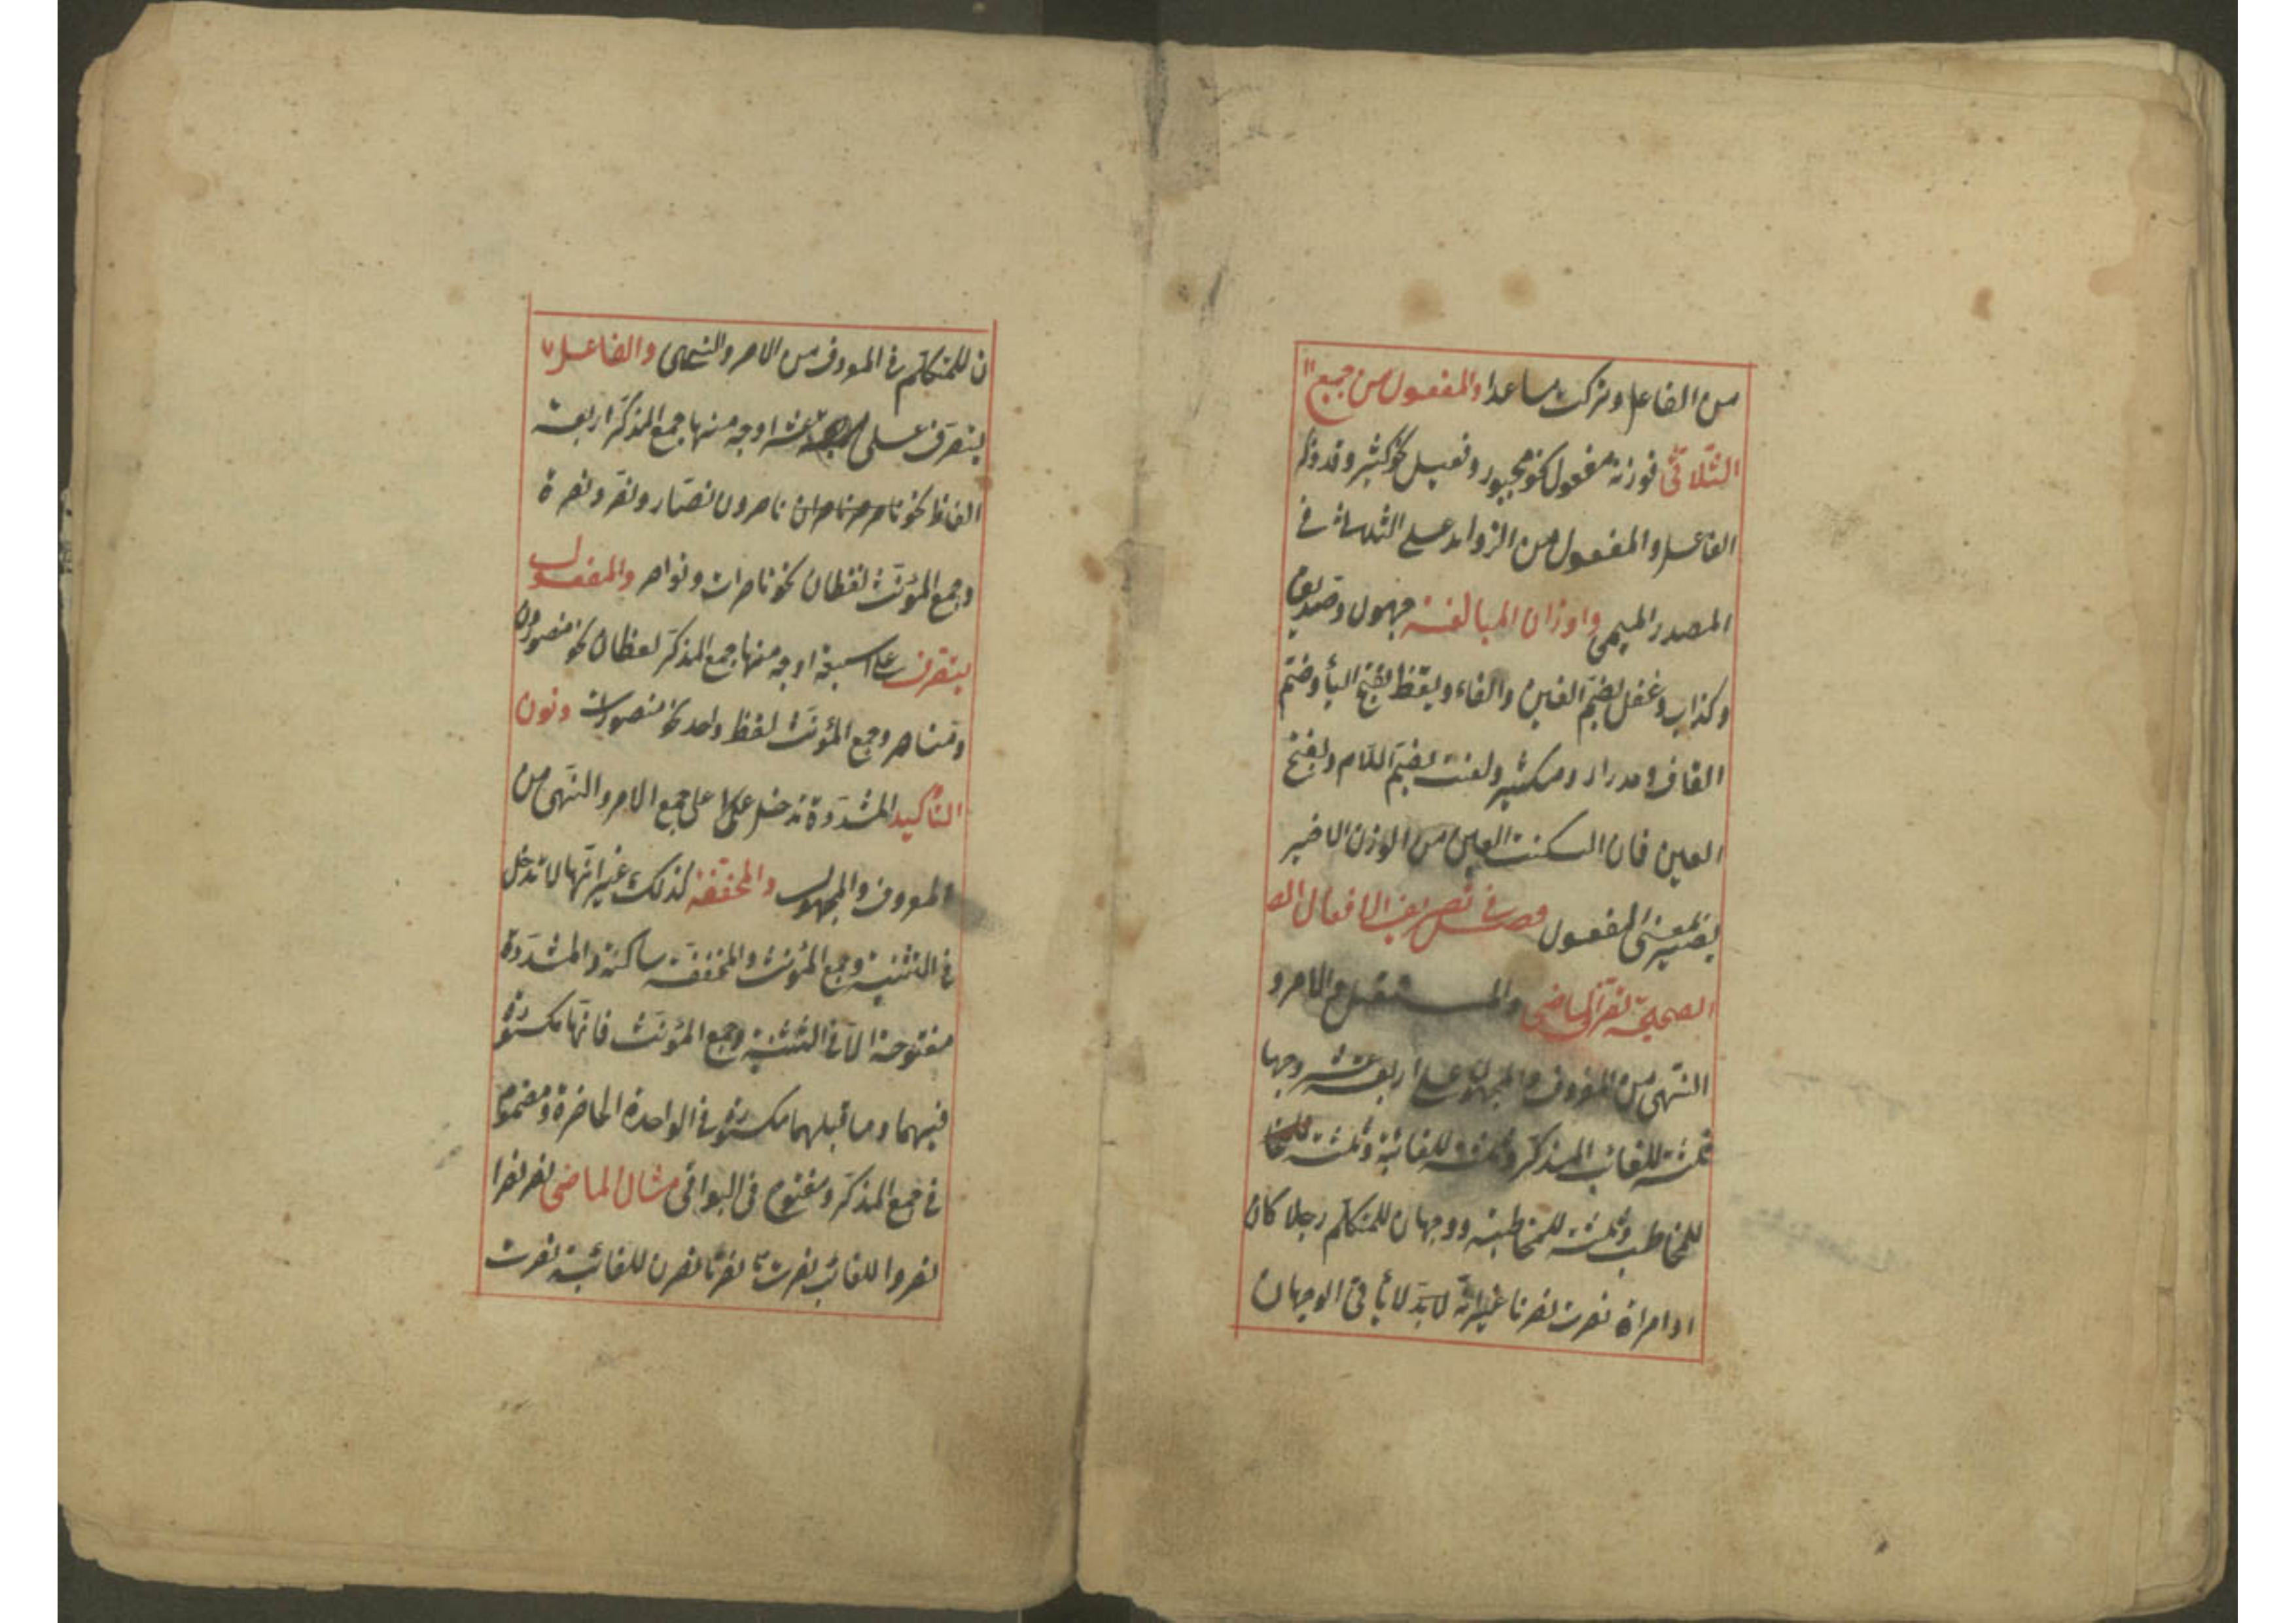 من الفاعل وتركت ما عدا والمفعول من جميع
الثلاثى فوزنه مفعول نحو مجبور وفعيل نحو كثير وقد ذكر
الفاعل والمفعول من الزوايد على الثلاثى فى
المصدر الميمى واوزان المبالغة جهول وصديق
وكذاب وغفل بضم الغين والفاء ويقظ بفتح اليأ وضم
القاف ومدرار ومكثير ولعنة بضم اللام وبفتح
العين فان اسكنت العين من الوزن الاخير
يصير بمعنى المفعول فصل فى تصريف الافعال الص
الصحيحة تصرف الماضى والمستقبل والامر و
النهى من المعروف والمجهول على اربعة عشر وجها
ثلثة للغائب المذكر وثلثة للغائبة وثلثة
للمخاطب وثلثة للمخاطبة ووجهان للمتكلم رجلا كان
او امراة نصرت نصرنا غير انه لا بد لا يأتى الوجهان
ن للمتكلم فى المعروف من الامر والنهى والفاعل
يتصرف على عشرة اوجه منها جمع المذكر اربعة
الفاظ نحو ناصر ناصران ناصرون نصار ونصر ونصرة
وجمع المؤنث لفظان نحو ناصرات ونواصر والمفعول
يتصرف على سبعة اوجه منها جمع المذكر لفظان نحو منصورون
ومناصر وجمع المؤنث لفظ واحد نحو منصورات ونون
التأكيد المشددة تدخل على جمع الامر والنهى من
المعروف والمجهول والمخففة كذلك غير انها لا تدخل
فى التثنية وجمع المؤنث والمخففة ساكنة والمشددة
مفتوحة الا فى التثنية وجمع المؤنث فانها مكسورة
فيهما وما قبلهما مكسورة فى الواحدة الحاضرة ومضموم
فى جمع المذكر ومفتوح فى البواقى مثال الماضى نصر نصرا
نصروا للغائب نصرت نصرتا نصرن للغائبة نصرت